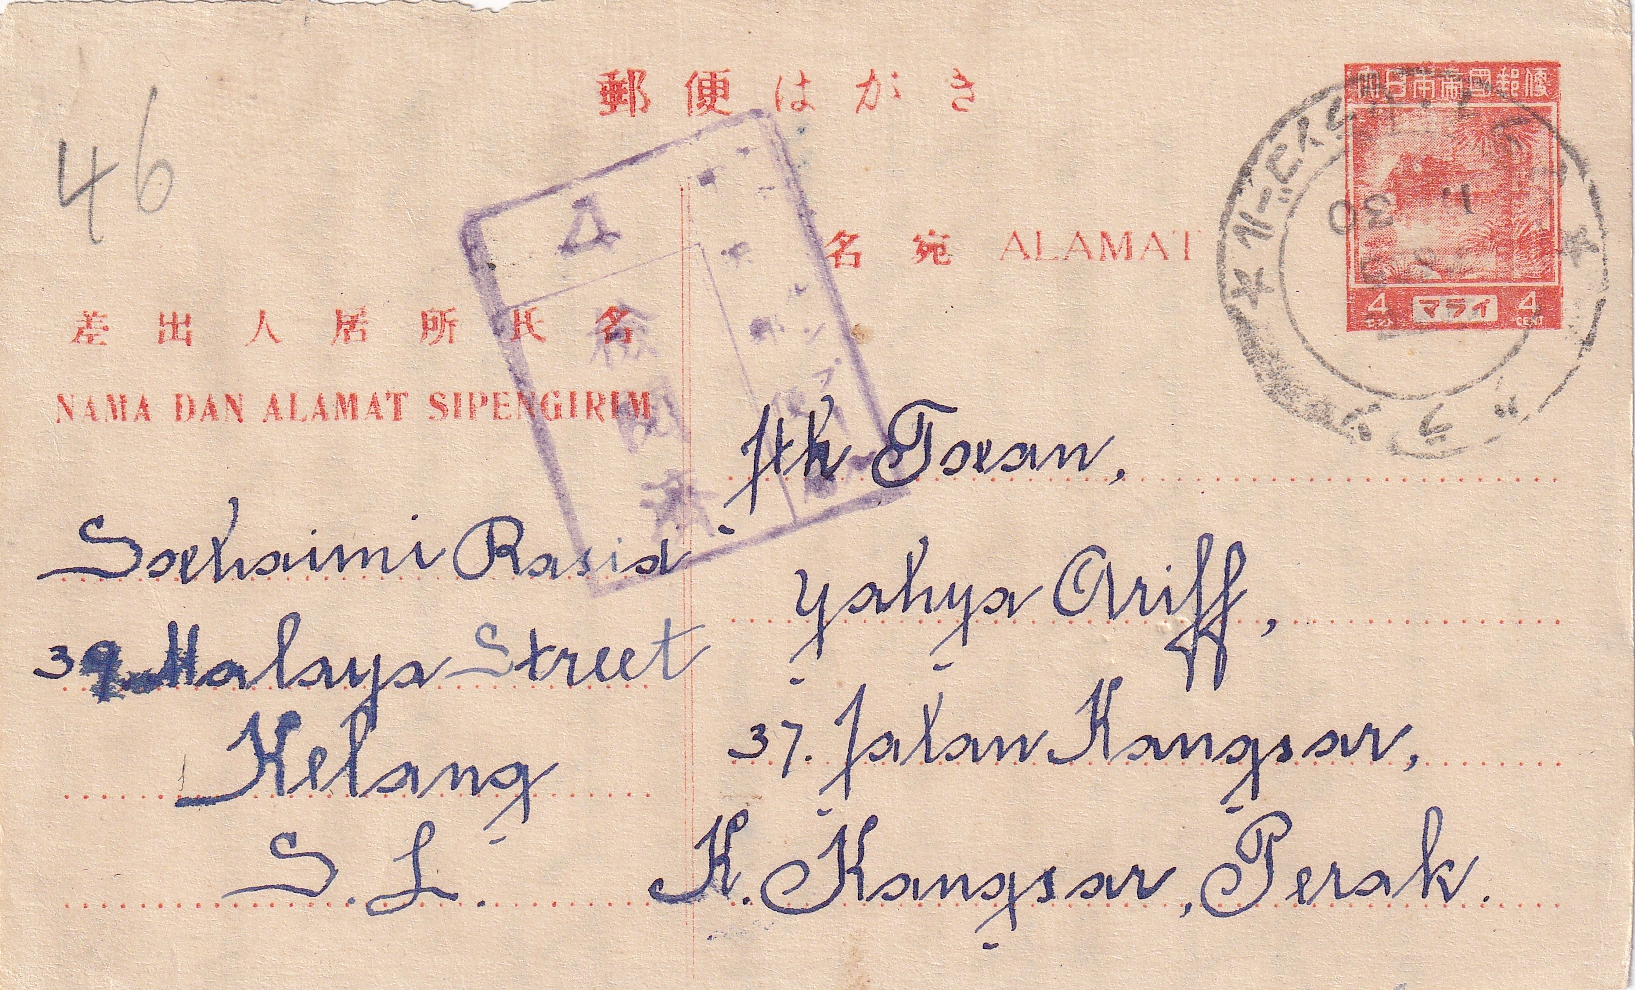 郵便はがき
46
大日本帝國郵便
4 セント マライ 4 CENT
名宛 ALAMAT
差出人居所氏名
NAMA DAN ALAMAT SIPENGIRIM
検閲済
Itk Toean,
Yahya Ariff,
37. Jalan Kangsar,
K. Kangsar, Perak.
Soehaimi Rasid
39. Malaya Street
Kelang
S. L.